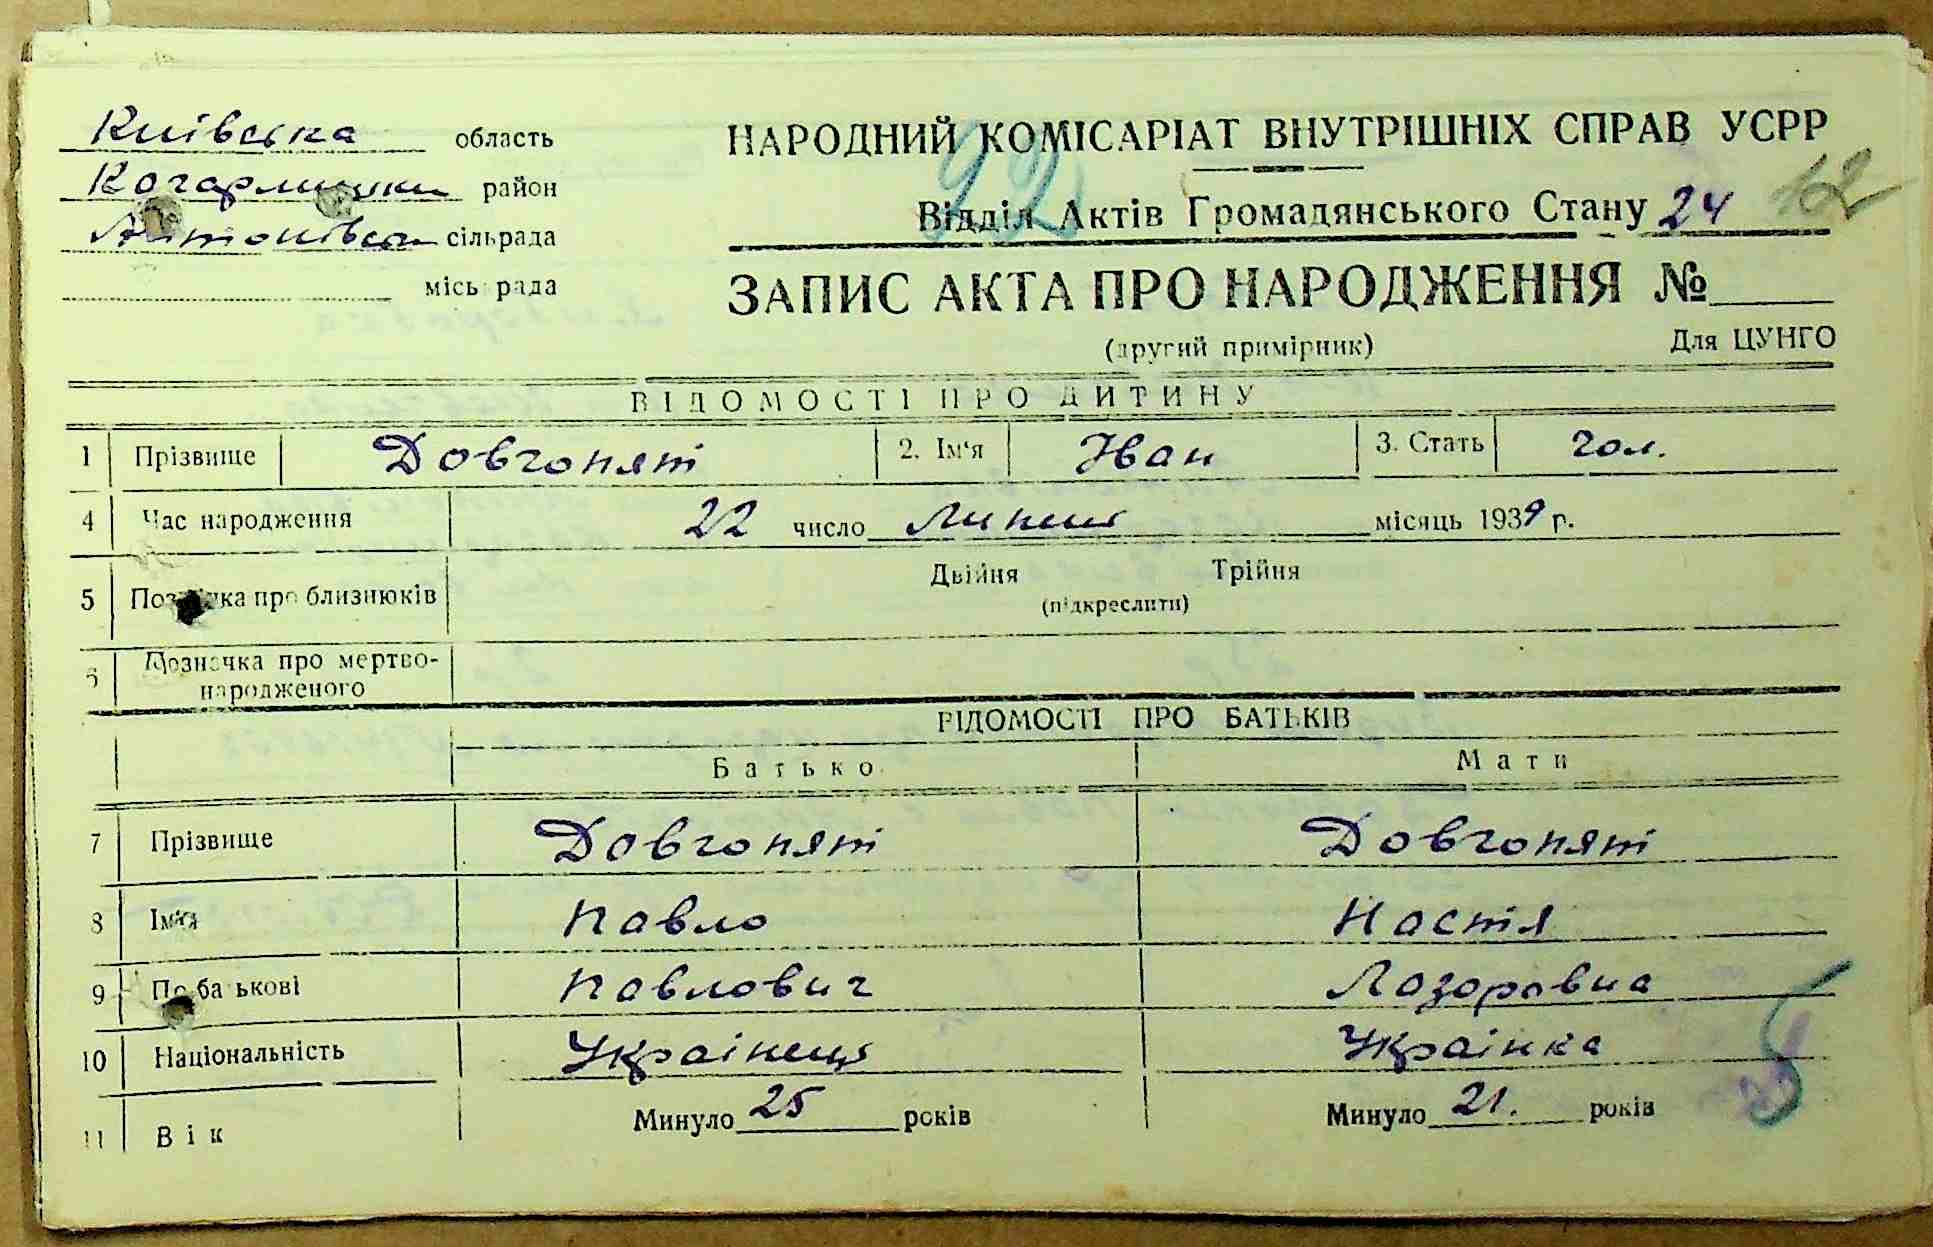 Київська область
Кагарлицьки район
Антонівська сільрада
місь рада
НАРОДНИЙ КОМІСАРІАТ ВНУТРІШНІХ СПРАВ УСРР
22
Відділ Актів Громадянського Стану 24 12
ЗАПИС АКТА ПРО НАРОДЖЕННЯ №
(другий примірник) Для ЦУНГО
ВІДОМОСТІ ПРО ДИТИНУ
1 Прізвище Довгопят 2. Ім'я Іван 3. Стать чол.
4 Час народження 22 число Липня місяць 1939 р.
5 Позначка про близнюків Двійня Трійня
(підкреслити)
6 Позначка про мертво-
народженого
ВІДОМОСТІ ПРО БАТЬКІВ
Батько Мати
7 Прізвище Довгопят Довгопят
8 Ім'я Павло Настя
9 По батькові Павлович Лазоровна
10 Національність Украінець Украінка
11 Вік Минуло 25 років Минуло 21. років